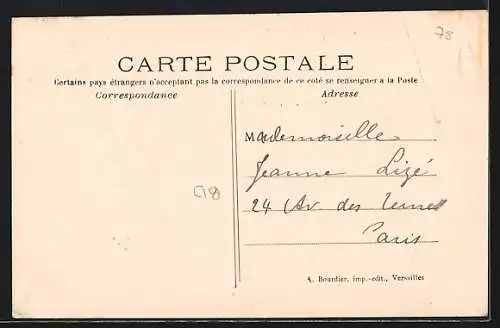 78
CARTE POSTALE
Certains pays étrangers n'acceptant pas la correspondance de ce côté se renseigner à la Poste
Correspondance
Adresse
Mademoiselle
Jeanne Lizé
24 Av. des Ternes
Paris
G8
A. Bourdier, imp.-edit., Versailles